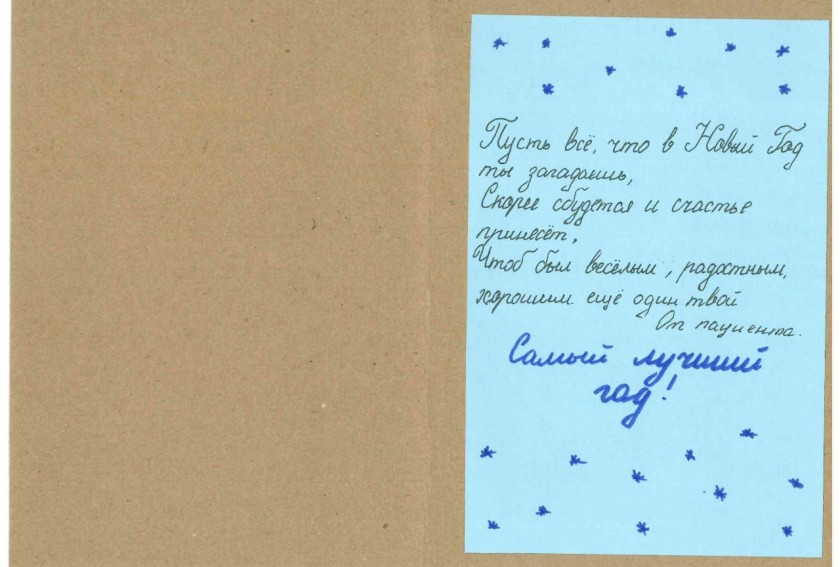 Пусть всё, что в Новый Год
ты загадаешь,
Скорее сбудется и счастье
принесёт,
Чтоб был весёлым, радостным,
хорошим ещё один твой
От пациента.
Самый лучший
год!